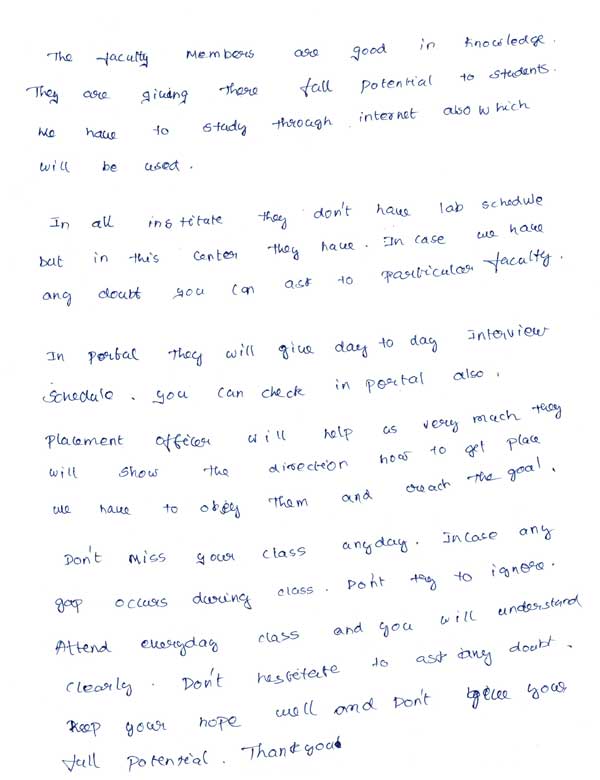 The faculty Members are good in knowledge.
They are giving there full potential to students.
we have to study through internet also which
will be used.
In all institate they don't have lab schedule
but in this Center they have. In case we have
any doubt you can ask to particular faculty.
In portal They will give day to day Interview
Schedule. you can check in portal also.
Placement officer will help us very much they
will show the direction how to get place
we have to obey Them and reach the goal.
Don't miss your class anyday. Incase any
gap occurs during class. Don't try to ignore.
Attend everyday class and you will understand
Clearly. Don't hesitate to ask any doubt.
Keep your hope well and Don't give your
full potential. Thank you